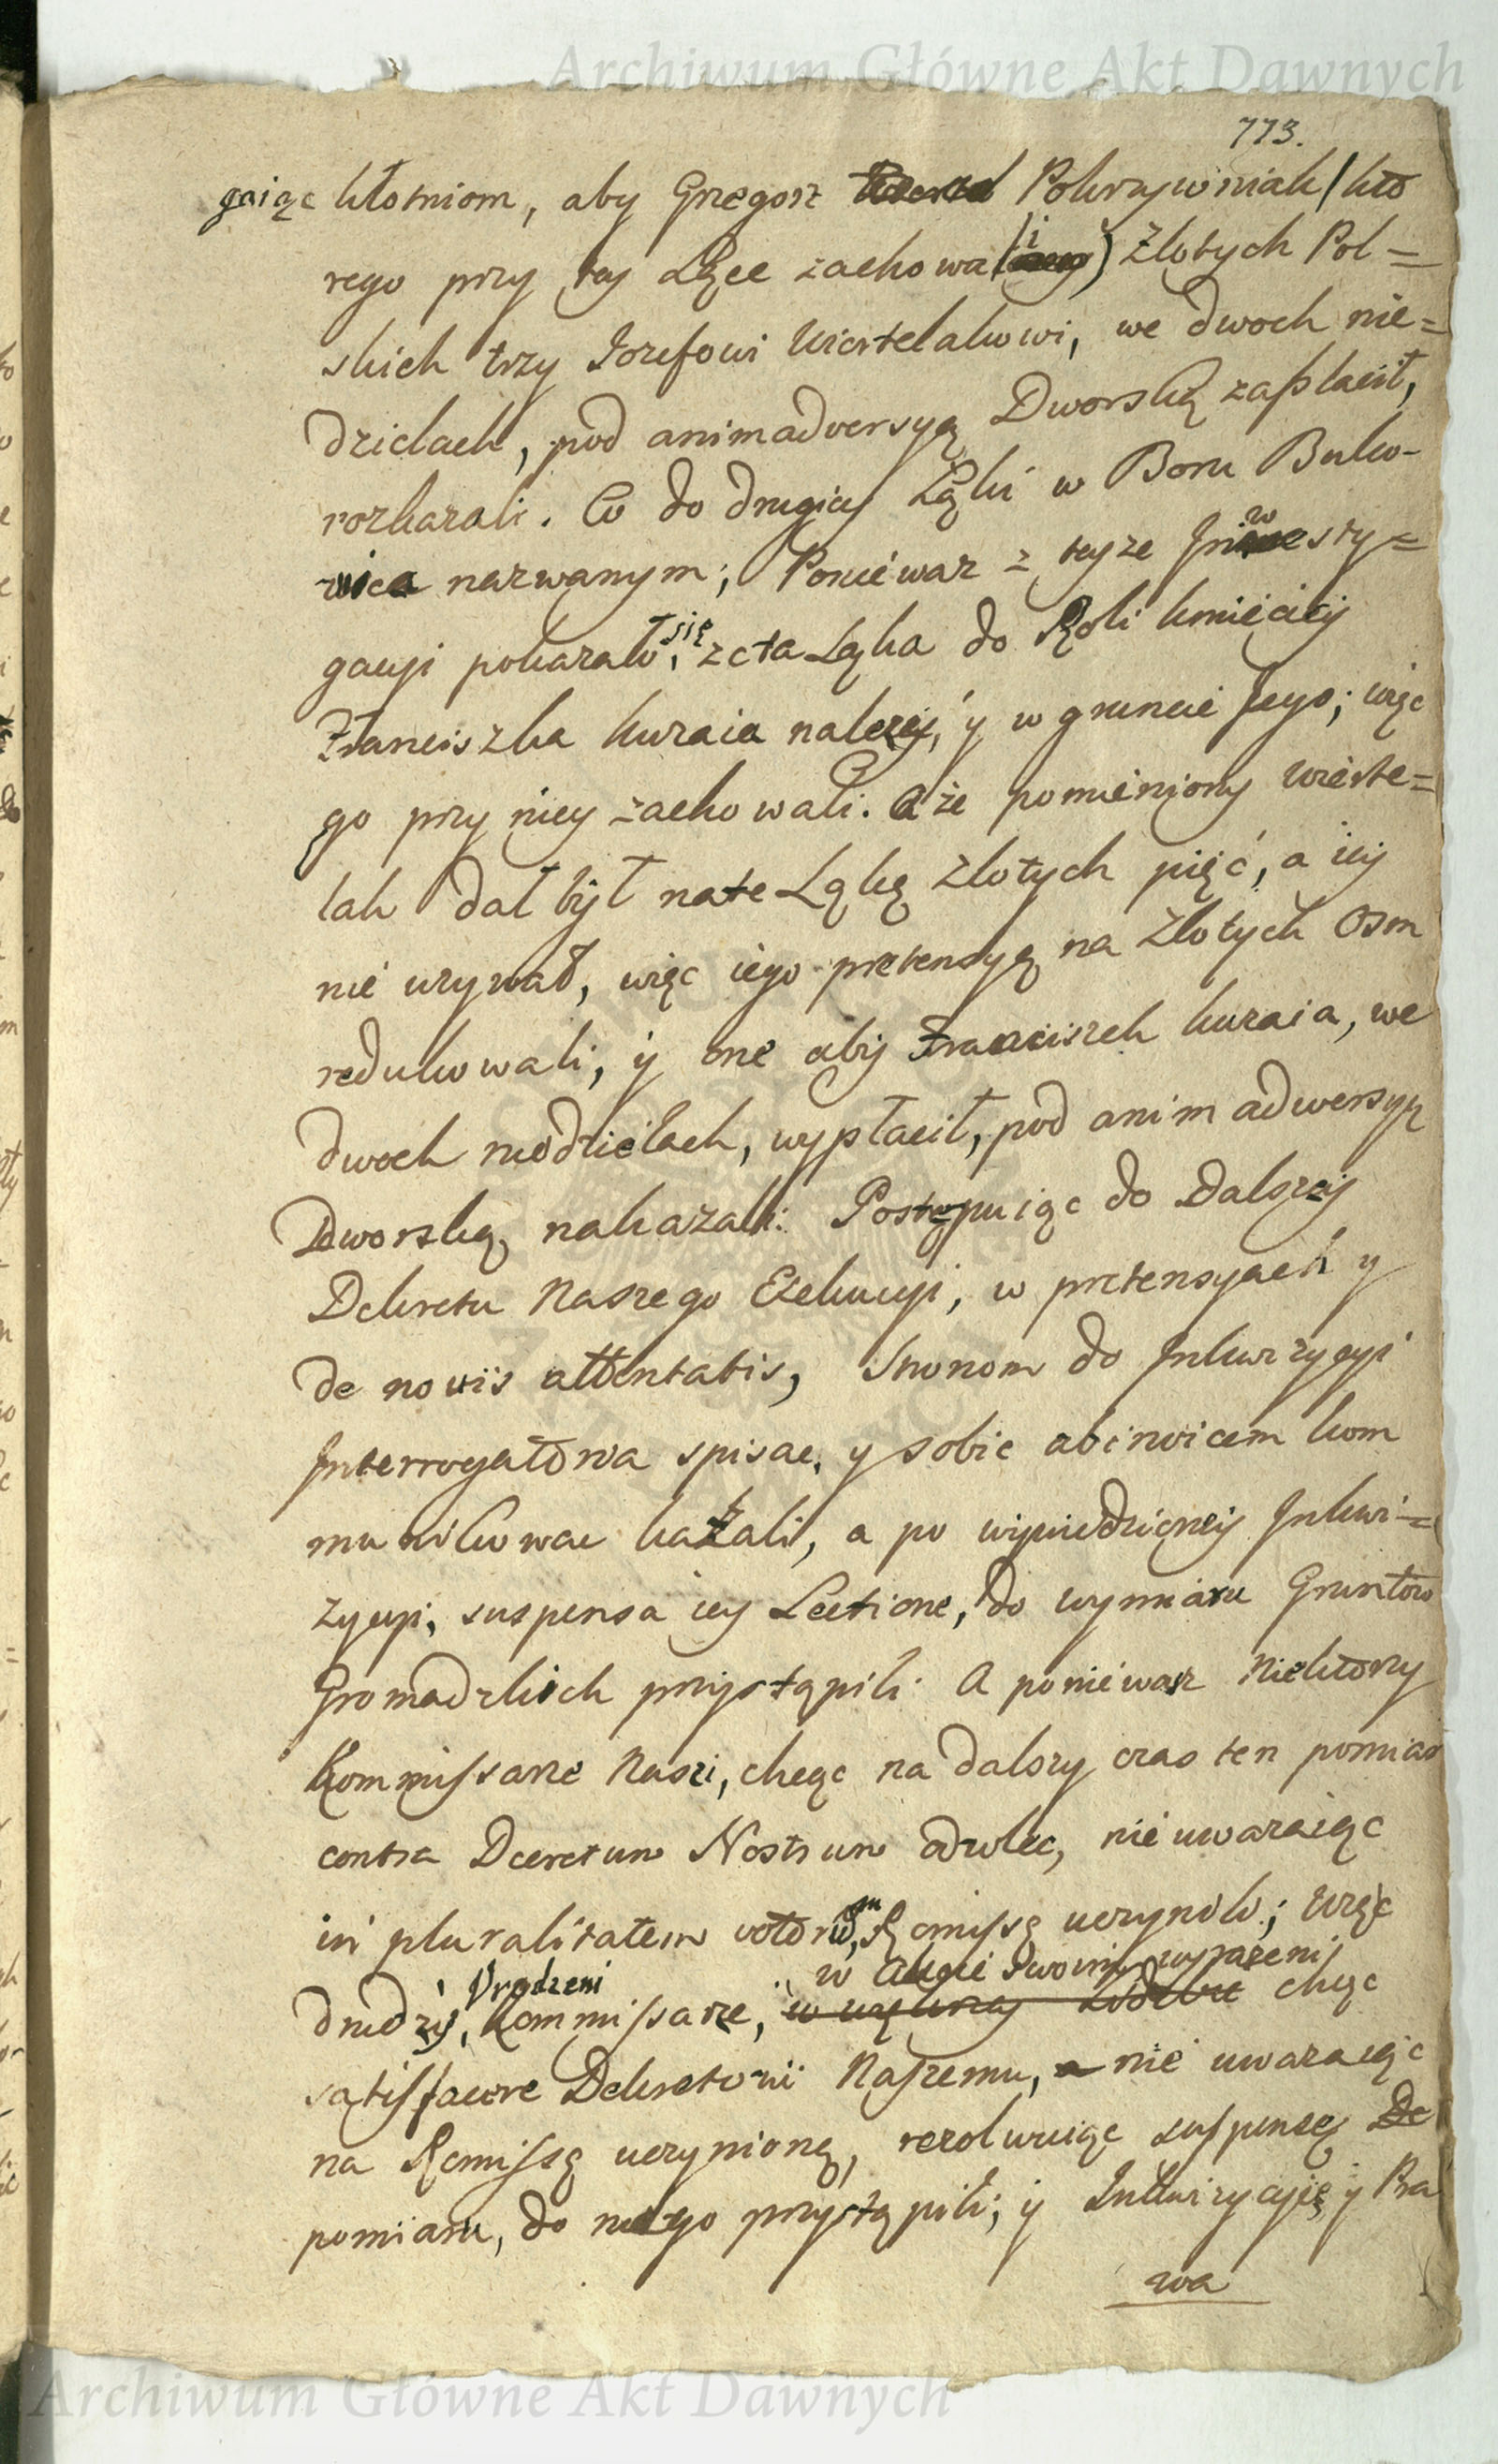 Archiwum Główne Akt Dawnych
773.
gaiąc kłotniom, aby Grzegorz Pokrzywniak / kto
rego przy tey Łące zachowali) Złotych Pol=
skich trzy Jozefowi Wiertelakowi, we dwoch nie=
dzielach, pod animadversyą Dworską zapłacił,
rozkazali. Co do drugiey Łąki w Boru Buko-
wica nazwanym; Poniéwaz z teyze Inwesty=
gacyi pokazało się, ze ta Łąka do Roli kmiéciéy
Franciszka Kuraia nalezy, y w gruncie Jego; więc
go przy niey zachowali. A że pomieniony Wierte=
lak dał był na te Łąkę Złotych pięć, a iéy
nié uzywał, więc iego pretensyą na Złotych Osm
redukowali, y one aby Franciszek Kuraia, we
dwoch niedzielach, wypłacił, pod animadwersyą
Dworską nakazali. Postępuiąc do Dalszéy
Dekretu Naszego Exekucyi, w pretensyach y
de noviis attentatis, Stronom do Inkwizycyi
Interrogatoria spisac, y sobie abinvicem kom
munikowac kazali, a po wywiedzionéy Inkwi=
zycyi, suspensa iey Lectione, do wymiaru Gruntow
Gromadzkich przystąpili. A poniéwaz Niektorzy
Kommissarze Nasi, chcąc na dalszy czas ten pomiar
contra Decretum Nostrum odwlec, nié uwazaiąc
in pluralitatem votorum, Remissę uczynili; więc
Urodzeni w Akcie Swoim wyrażeni
drudzy, Kommissarze, chcąc
satisfacere Dekretowi Naszemu, nié uwazaiąc
na Remissę uczynioną, rezolwuiąc suspensę De
pomiaru, do niego przystąpili; y Inkwizycyię y Pra
wa
Archiwum Główne Akt Dawnych